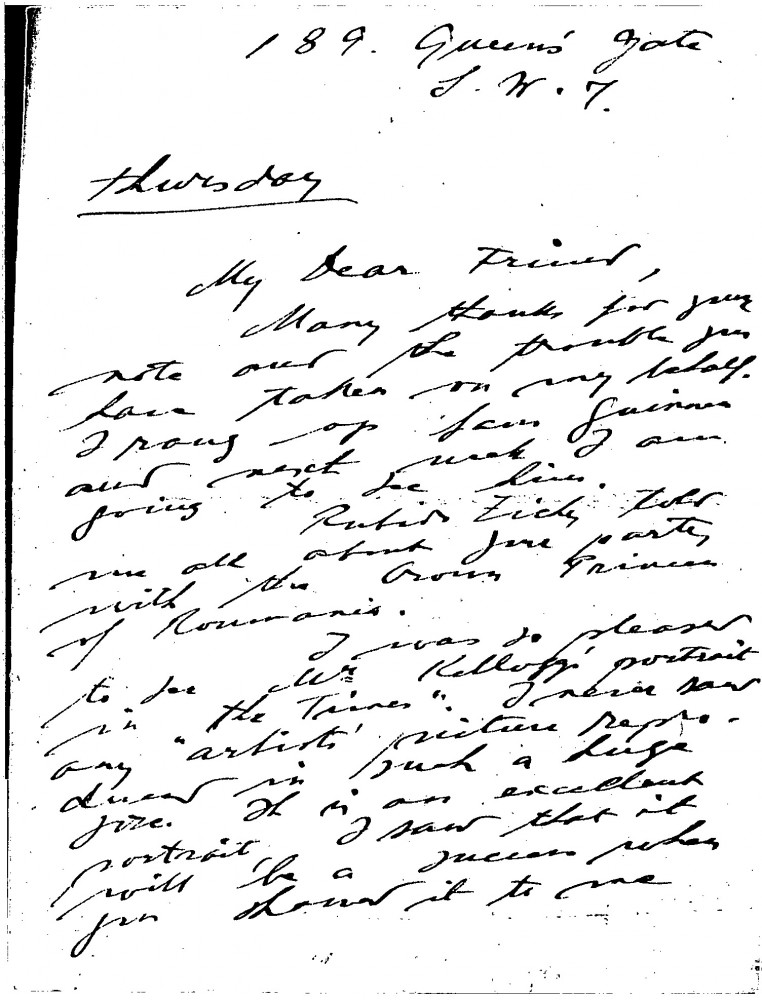 189. Queen's Gate
S.W.7.
Thursday
My Dear Friend,
Many thanks for your
note and the trouble you
have taken on my behalf.
I rang up Guinness
and next week I am
going to see him.
Zichy told
me all about your party
with the Crown Princess
of Roumania.
I was so pleased
to see Mr Kellogg's portrait
in "the Times". I never saw
any "artists' picture repro-
duced in such a huge
size. It is an excellent
portrait. I saw that it
will be a success when
you showed it to me